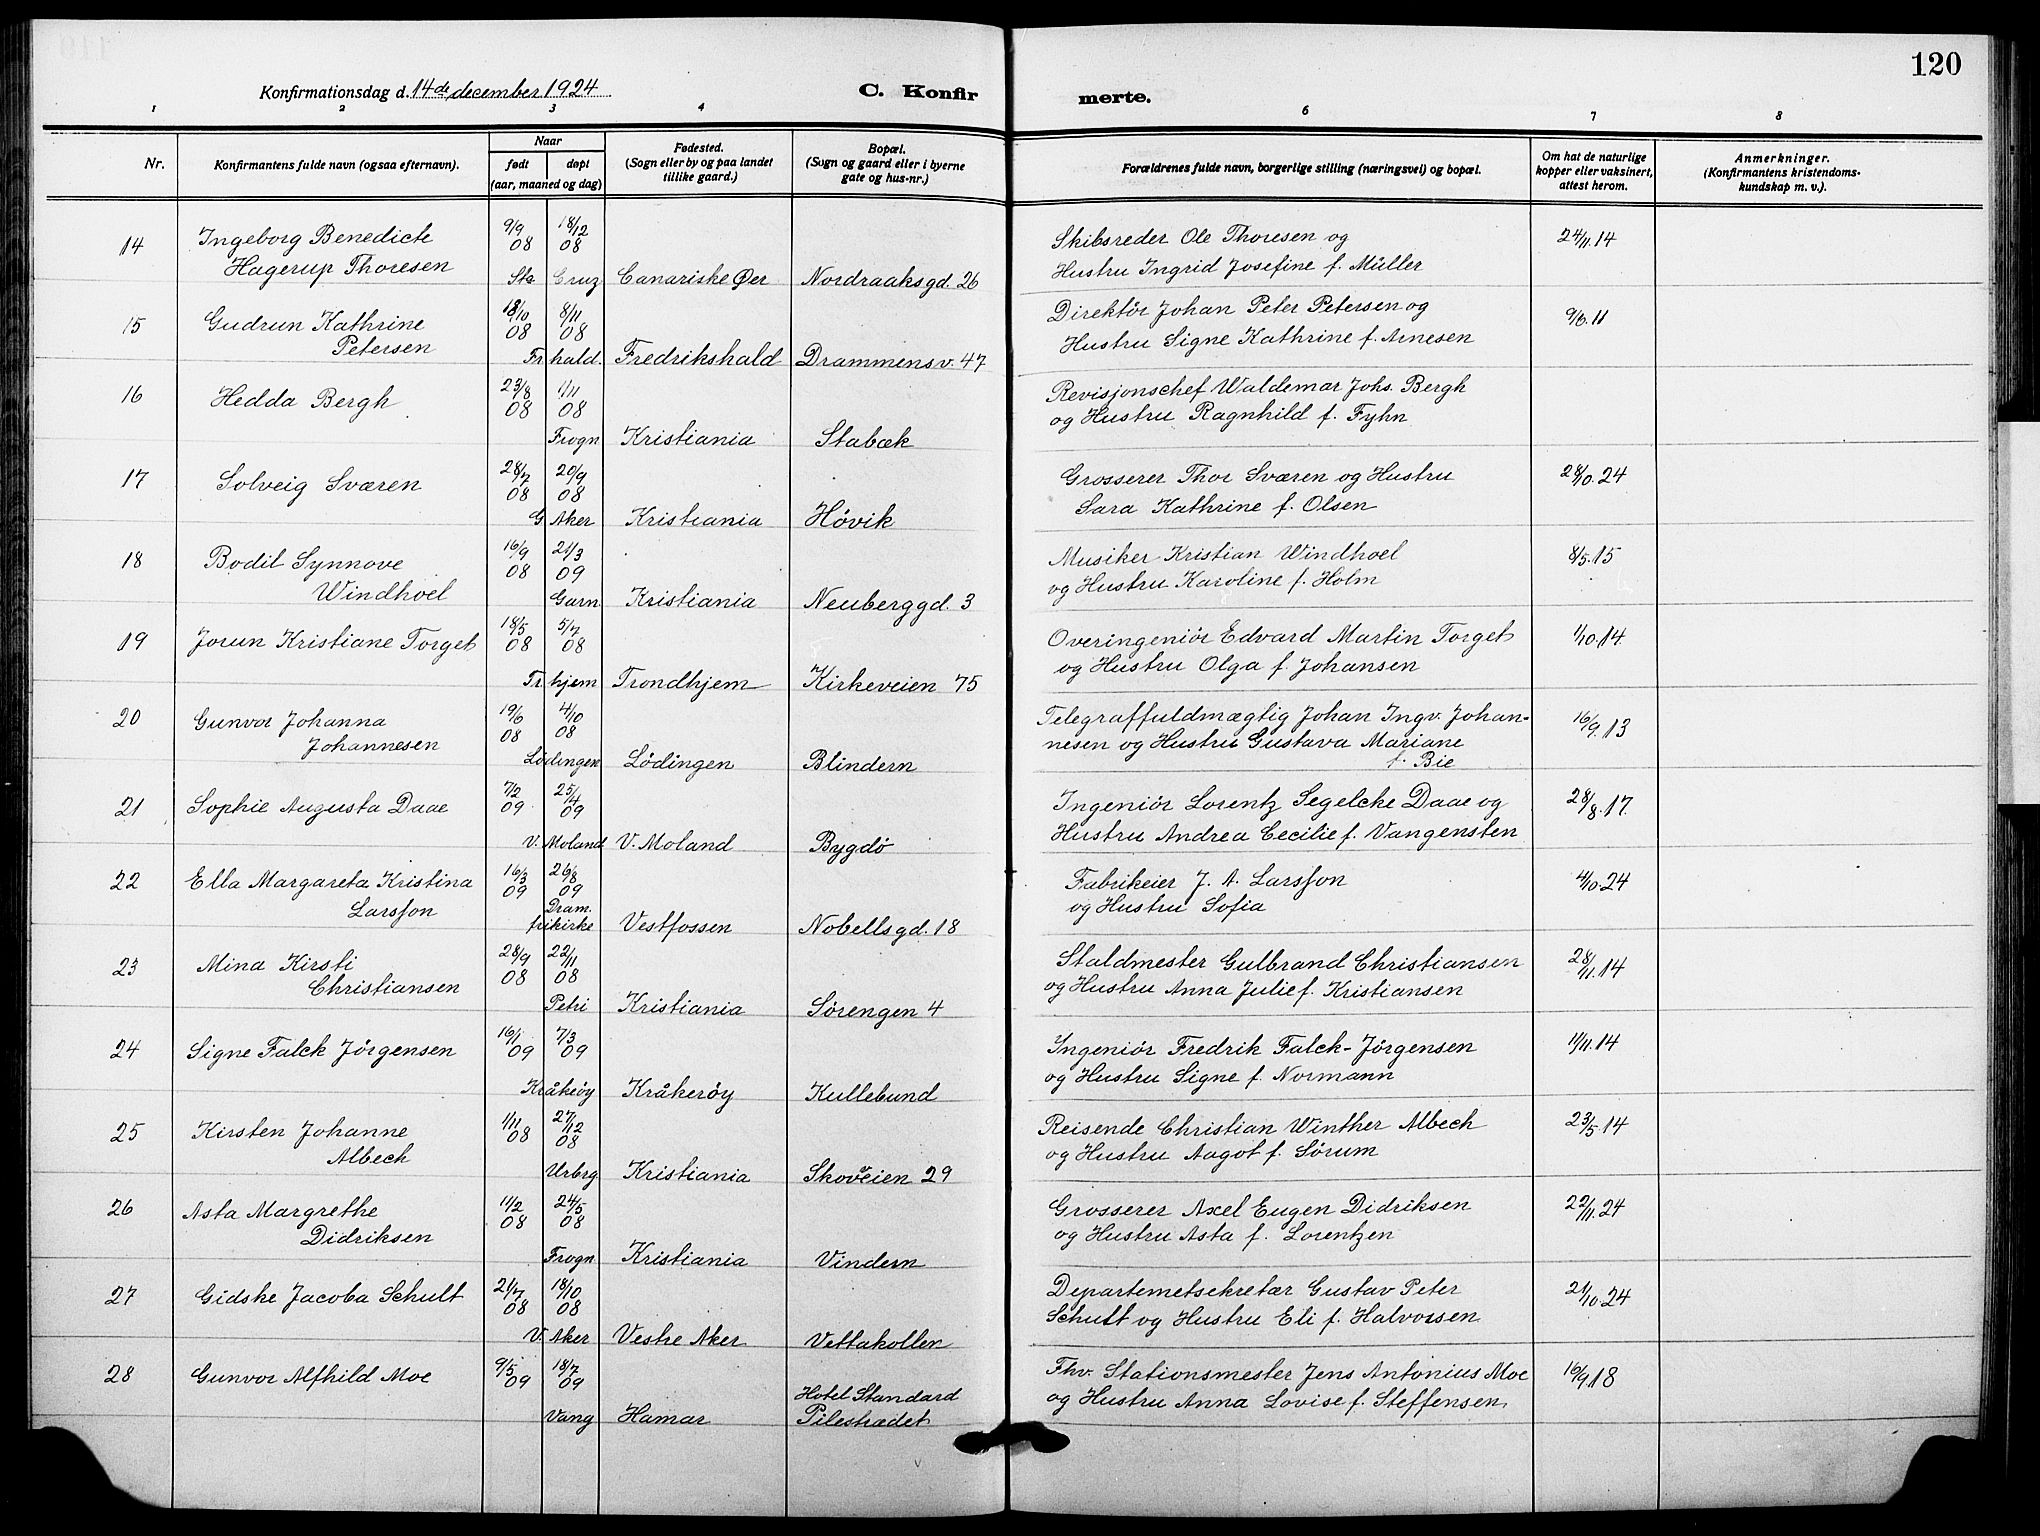 120
Konfirmationsdag d. 14de december 1924
C. Konfir
merte.
1 2 3 4 6 7 8
Nr.
Konfirmantens fulde navn (ogsaa efternavn).
Naar
født
døpt
(aar, maaned og dag)
Fødested.
(Sogn eller by og paa landet
tillike gaard.)
Bopæl.
(Sogn og gaard eller i byerne
gate og hus-nr.)
Forældrenes fulde navn, borgerlige stilling (næringsvei) og bopæl.
Om hat de naturlige
kopper eller vaksinert,
attest herom.
Anmerkninger.
(Konfirmantens kristendoms-
kundskap m. v.).
14 Ingeborg Benedicte 9/9 08 18/12 08 Skibsreder Ole Thoresen og 24/11.14
Hagerup Thoresen Sta Cruz Canariske Øer Nordraaksgd. 26 Hustru Ingrid Josefine f. Müller
15 Gudrun Kathrine /10 08 8/11 08 Direktör Johan Peter Petersen og 9/6.11
Petersen Fr.hald. Fredrikshald Drammensv. 47 Hustru Signe Kathrine f. Arnesen
16 Hedda Bergh 23/8 08 1/11 08 Revisjonschef Waldemar Johs. Bergh
Frogn Kristiania Stabæk og Hustru Ragnhild f. Fyhn
17 Solveig Sværen 28/7 08 20/9 08 Grosserer Thor Sværen og Hustru 28/10.24
G Aker Kristiania Hövik Sara Kathrine f. Olsen
18 Bodil Synnove 16/9 08 21/3 09 Musiker Kristian Windhoel 8/5.15
Windhoel Garn Kristiania Neuberggd. 3 og Hustru Karoline f. Holm
19 Jorun Kristiane Torget 18/5 08 5/7 08 Overingeniör Edvard Martin Torget 1/10.14
Tr.hjem Trondhjem Kirkeveien 75 og Hustru Olga f. Johansen
20 Gunvor Johanna 19/6 08 4/10 08 Telegraffuldmægtig Johan Ingv. Johan- 16/9.13
Johannesen Lödingen Lödingen Blindern nesen og Hustru Gustava Mariane
f. Bie
21 Sophie Augusta Daae 7/2 09 25/4 09 Ingeniör Lorentz Segelcke Daae og 28/8.17.
V. Moland V. Moland Bygdö Hustru Andrea Cecilie f. Vangensten
22 Ella Margareta Kristina 16/3 09 26/8 09 Fabrikeier J. A. Larsson 4/10.24
Larsson Dram. frikirke Vestfossen Nobellsgd. 18 og Hustru Sofia
23 Mina Kirsti 28/9 08 22/11 08 Staldmester Gulbrand Christiansen 28/11.14
Christiansen Petri Kristiania Sörengen 4 og Hustru Anna Julie f. Kristiansen
24 Signe Falck Jörgensen 16/1 09 7/3 09 Ingeniör Fredrik Falck-Jörgensen 11/11.14
Kråkeöy Kråkeröy Kullebund og Hustru Signe f. Normann
25 Kirsten Johanne 1/11 08 27/12 08 Reisende Christian Winther Albech 23/5.14
Albech Urbrg. Kristiania Skovveien 29 og Hustru Aagot f. Sörum
26 Asta Margrethe 11/2 08 24/5 08 Grosserer Axel Eugen Didriksen 22/11.24
Didriksen Frogn Kristiania Vindern og Hustru Asta f. Lorentzen
27 Gidske Jacoba Schult 21/7 08 18/10 08 Departemetsekretær Gustav Peter 21/10.24
V. Aker Vestre Aker Vettakollen Schult og Hustru Eli f. Halvorsen
28 Gunvor Alfhild Moe 9/5 09 18/7 09 Fhv. Stationsmester Jens Antonius Moe 16/9.18
Vang Hamar Hotel Standard og Hustru Anna Lovise f. Steffensen
Pilestrædet